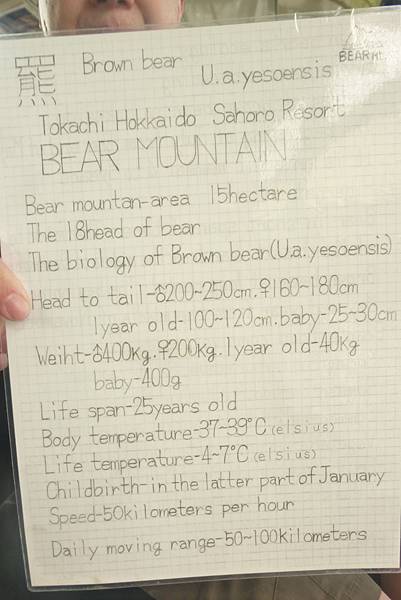 羆 Brown bear
U.a.yesoensis
BEAR Mt.
Tokachi Hokkaido Sahoro Resort
BEAR MOUNTAIN
Bear mountan-area 15hectare
The 18head of bear
The biology of Brown bear(U.a.yesoensis)
Head to tail-♂200~250cm.♀160~180cm
1year old-100~120cm.baby-25~30cm
Weiht-♂400kg.♀200kg.1year old-40kg
baby-400g
Life span-25years old
Body temperature-37~39°C(elsius)
Life temperature-4~7°C(elsius)
Childbirth-in the latter part of January
Speed-50kilometers per hour
Daily moving range-50~100kilometers